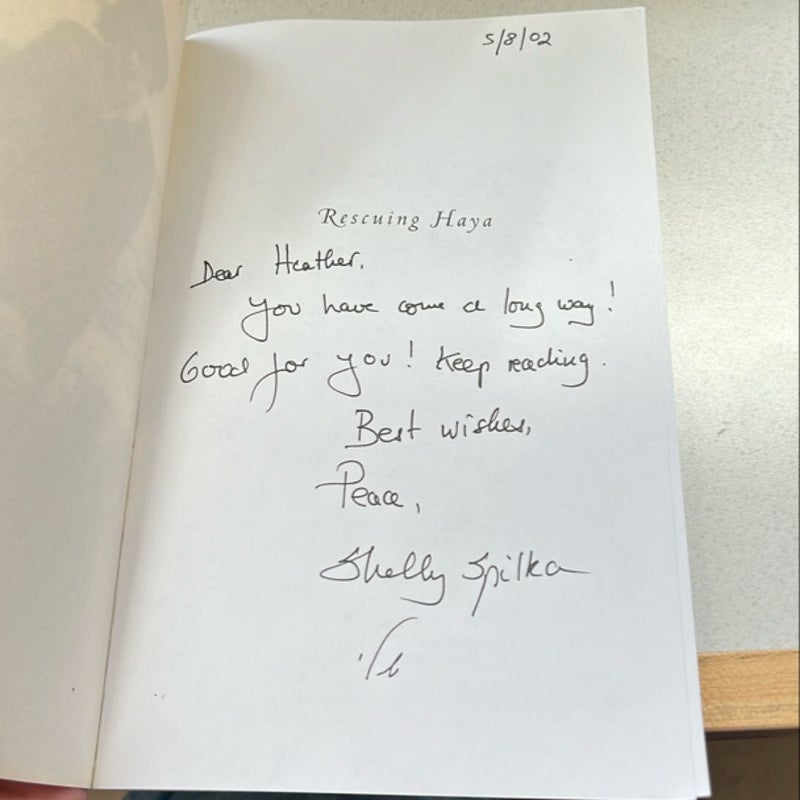 5/8/02
Rescuing Haya
Dear Heather,
You have come a long way!
Good for you! Keep reading.
Best wishes,
Peace,
Shelly Spilka